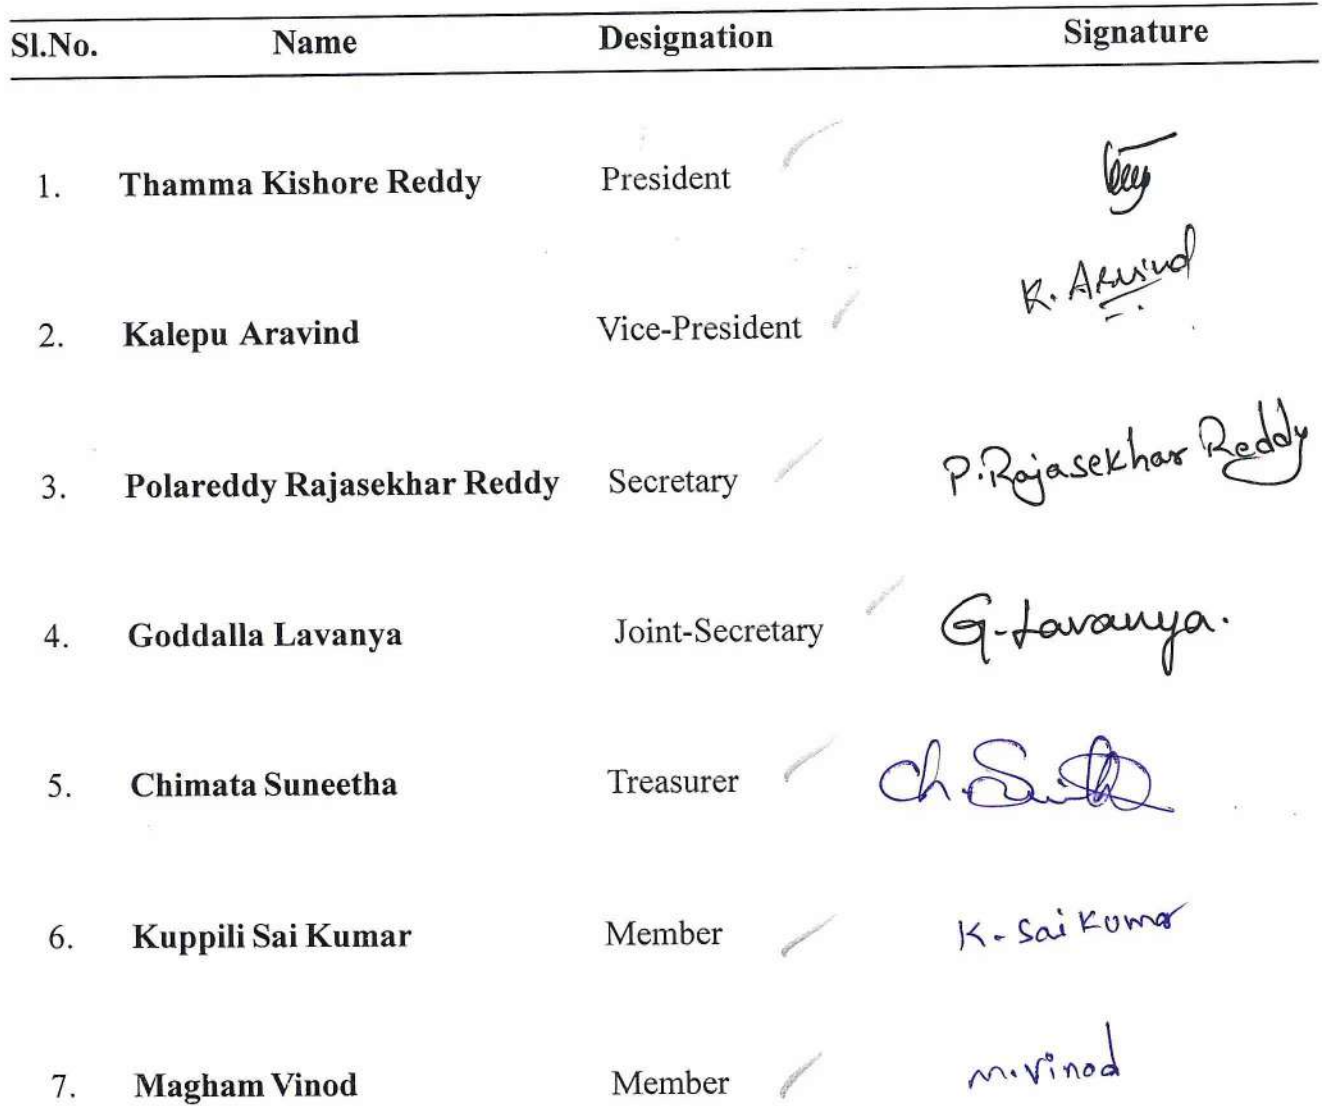 Sl.No. Name Designation Signature
1. Thamma Kishore Reddy President
2. Kalepu Aravind Vice-President K. Aravind
3. Polareddy Rajasekhar Reddy Secretary P. Rajasekhar Reddy
4. Goddalla Lavanya Joint-Secretary G. Lavanya.
5. Chimata Suneetha Treasurer Ch.
6. Kuppili Sai Kumar Member K. Sai Kumar
7. Magham Vinod Member M. Vinod